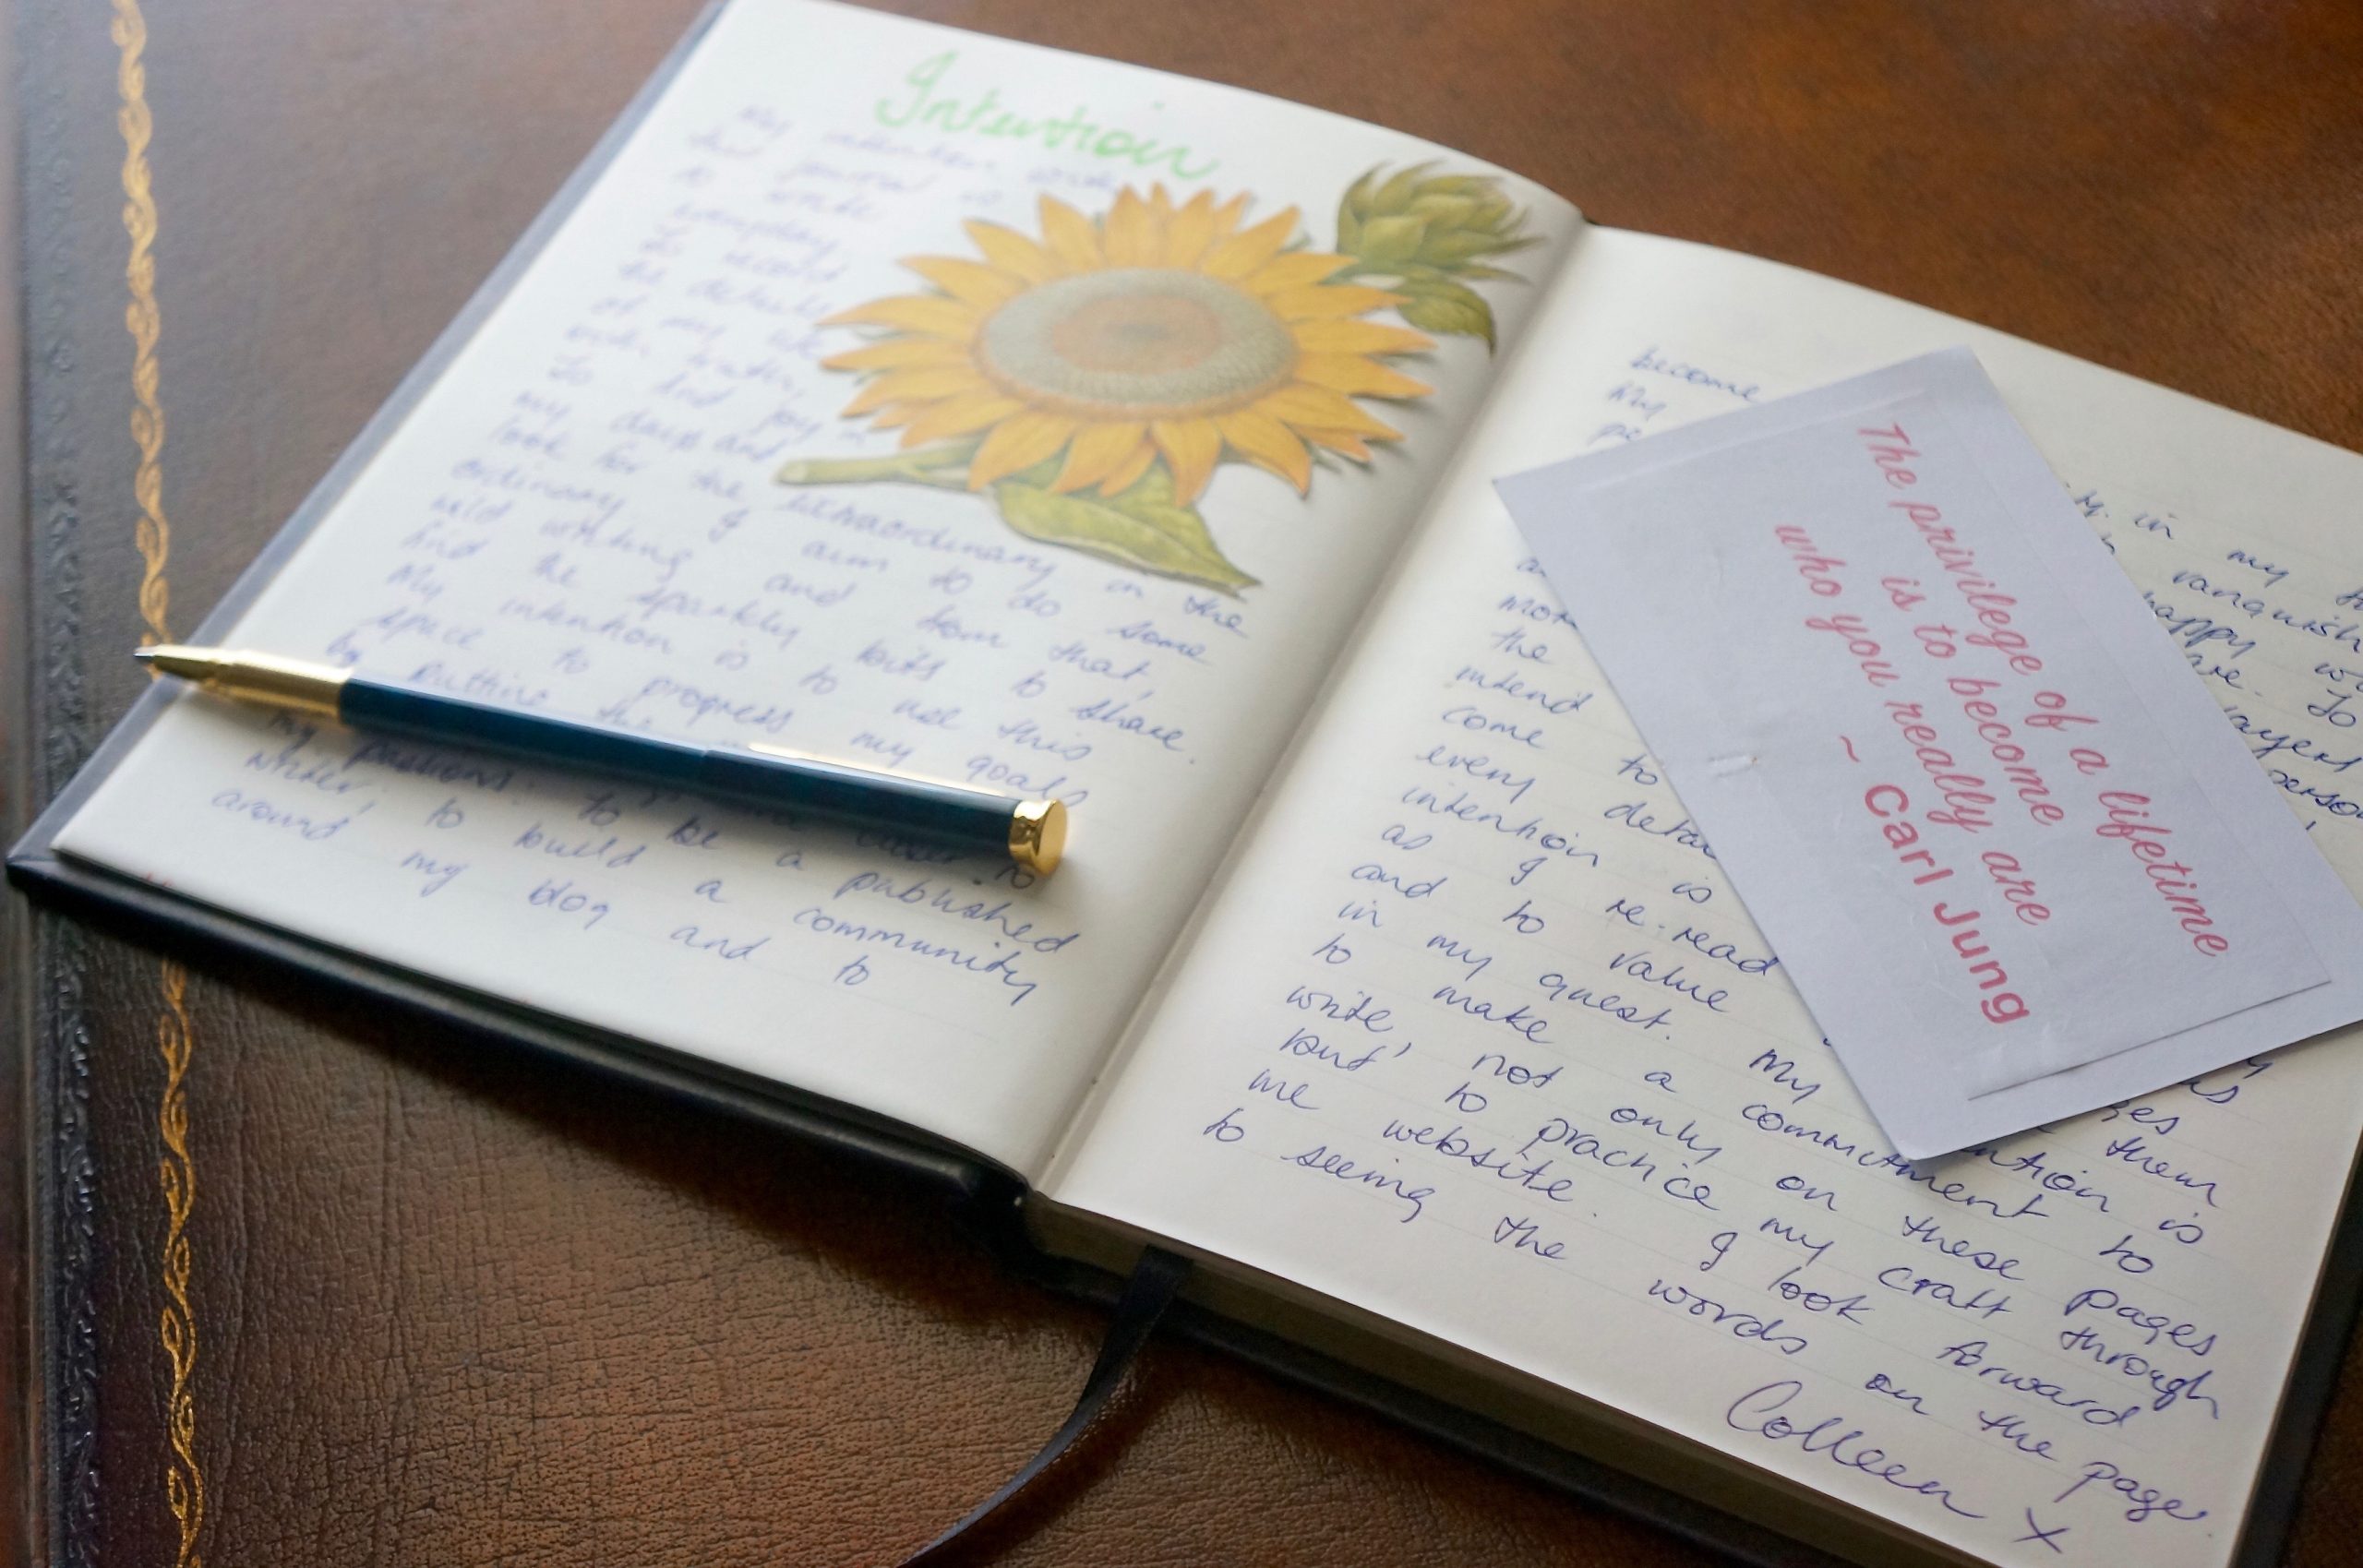 Intention
My intention with
this journal is
to write
everyday
to record
the details
of my life
to find joy in
my days and
look for the extraordinary in the
ordinary. I aim to do some
wild writing and from that,
find the sparkly bits to share.
My intention is to use this
space to progress my goals
by putting the
my passions: to be a published
writer, to build a community
around my blog and to
become
My
pe
in my
vanquish
happy
are. To
layers
perso
a
mor
the
intend
come to
every detai
intention is
as I re-read
and to value them
in my quest. My ntion is
to make a commitment to
write, not only on these pages
but to practice my craft through
me website. I look forward
to seeing the words on the page.
Colleen X
The privilege of a lifetime
is to become
who you really are
~ Carl Jung